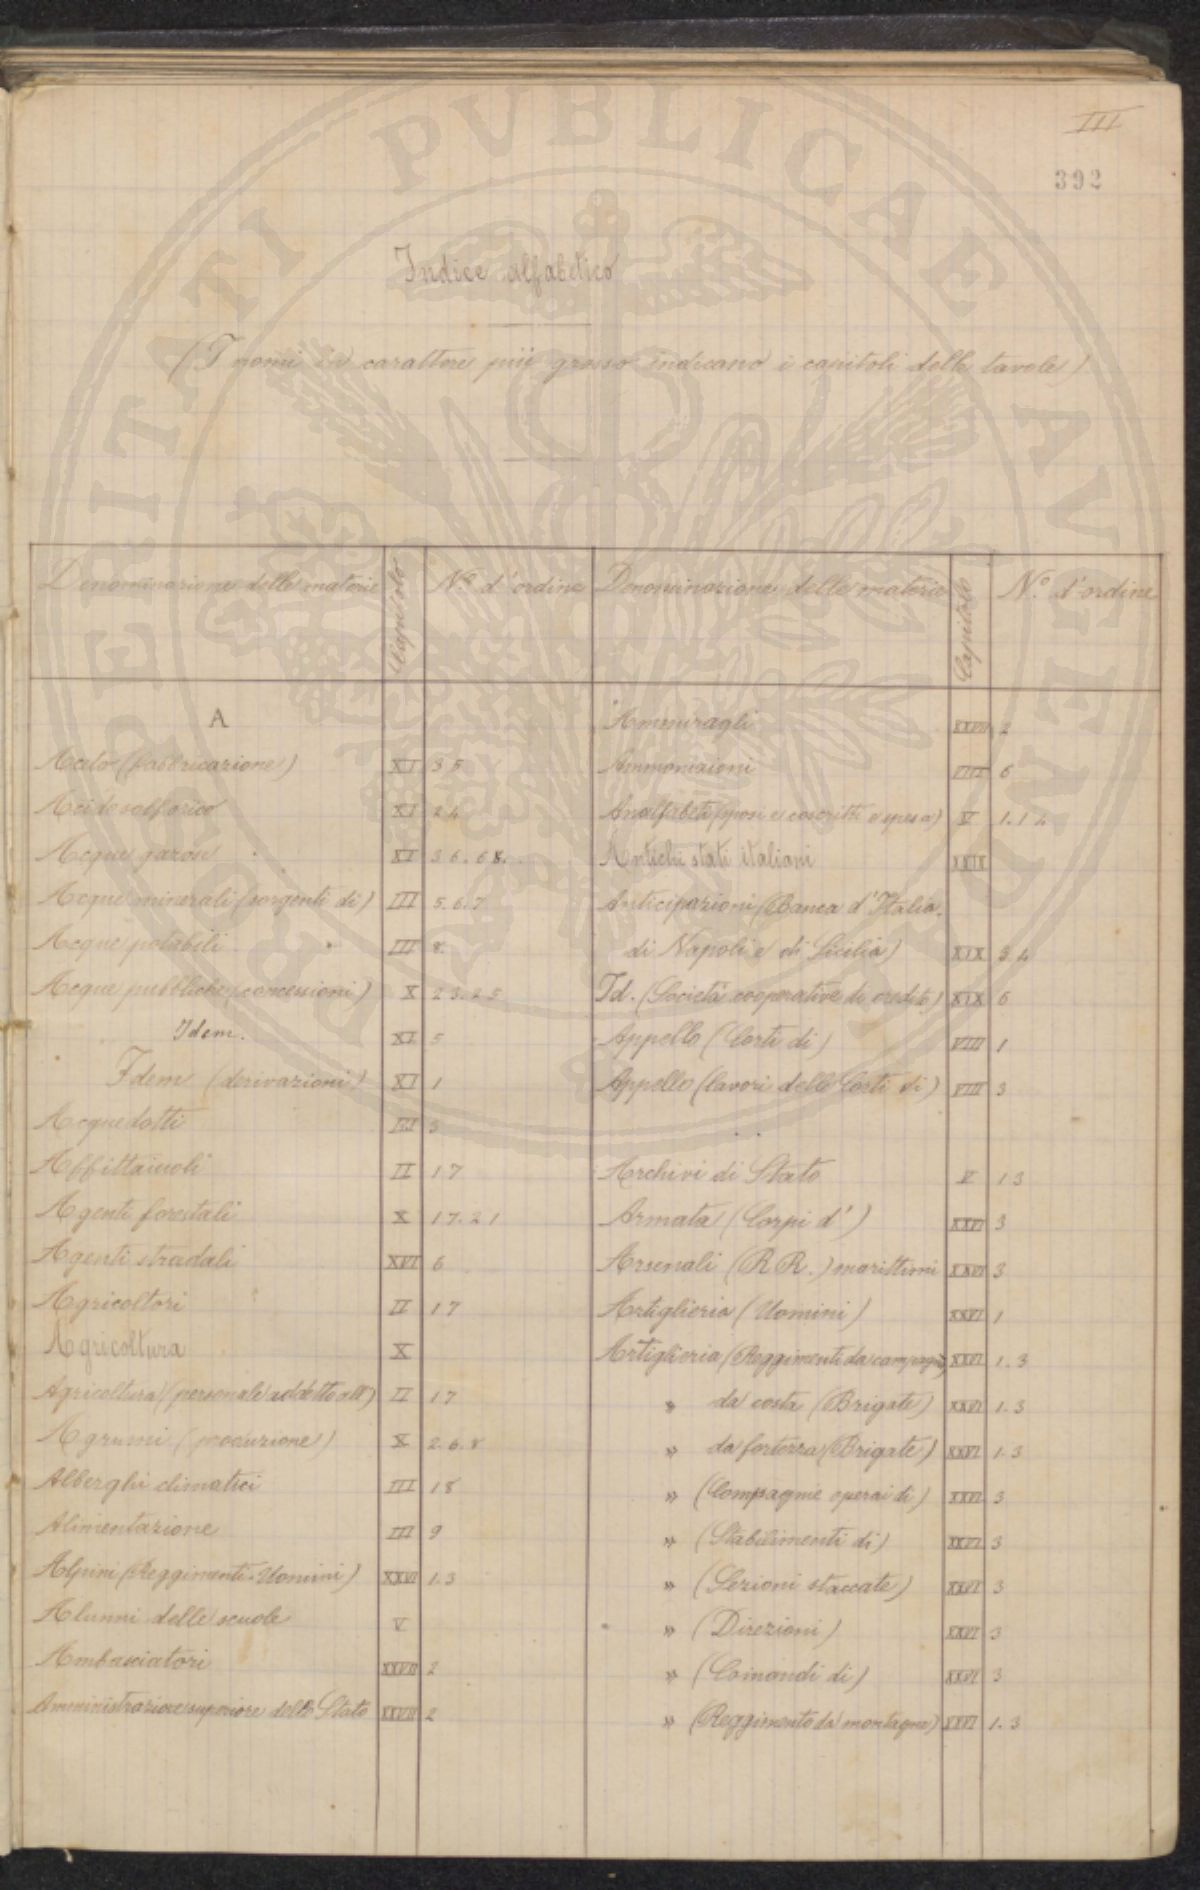 III
392
Indice alfabetico
(I nomi in carattere più grosso indicano i capitoli delle tavole)
Denominazione delle materie Capitolo N.º d'ordine
A
Aceto (fabbricazione) XI 35
Acido solforico XI 24
Acque gazose XI 36.68.
Acque minerali (sorgenti di) III 5.6.7
Acque potabili III 8.
Acque pubbliche (concessioni) X 23.25
Idem. XI 5
Idem (derivazioni) XI 1
Acquedotti III 3
Affittaiuoli II 17
Agenti forestali X 17.21
Agenti stradali XVI 6
Agricoltori II 17
Agricoltura X
Agricoltura (personale addetto all') II 17
Agrumi (produzione) X 2.6.8
Alberghi climatici III 18
Alimentazione III 9
Alpini (Reggimenti-Uomini) XXVI 1.3
Alunni delle scuole V
Ambasciatori XXVII 2
Amministrazione superiore dello Stato XXVII 2
Denominazione delle materie Capitolo N.º d'ordine
Ammiragli XXVII 2
Ammonizioni VIII 6
Analfabeti (sposi e coscritti e spose) V 1.14
Antichi stati italiani XXIX
Anticipazioni (Banca d'Italia.
di Napoli e di Sicilia) XIX 34
Id. (Società cooperative di credito) XIX 6
Appello (Corti di) VIII 1
Appello (lavori delle Corti di) VIII 3
Archivi di Stato V 13
Armata (Corpi d') XXVI 3
Arsenali (RR.) marittimi XXVI 3
Artiglieria (Uomini) XXVI 1
Artiglieria (Reggimenti da campagna) XXVI 1.3
" da costa (Brigate) XXVI 1.3
" da fortezza (Brigate) XXVI 1.3
" (Compagnie operai di) XXVI 3
" (Stabilimenti di) XXVI 3
" (Sezioni staccate) XXVI 3
" (Direzioni) XXVI 3
" (Comandi di) XXVI 3
" (Reggimento da montagna) XXVI 1.3
PROSPERITATI PUBLICAE AUGENDAE